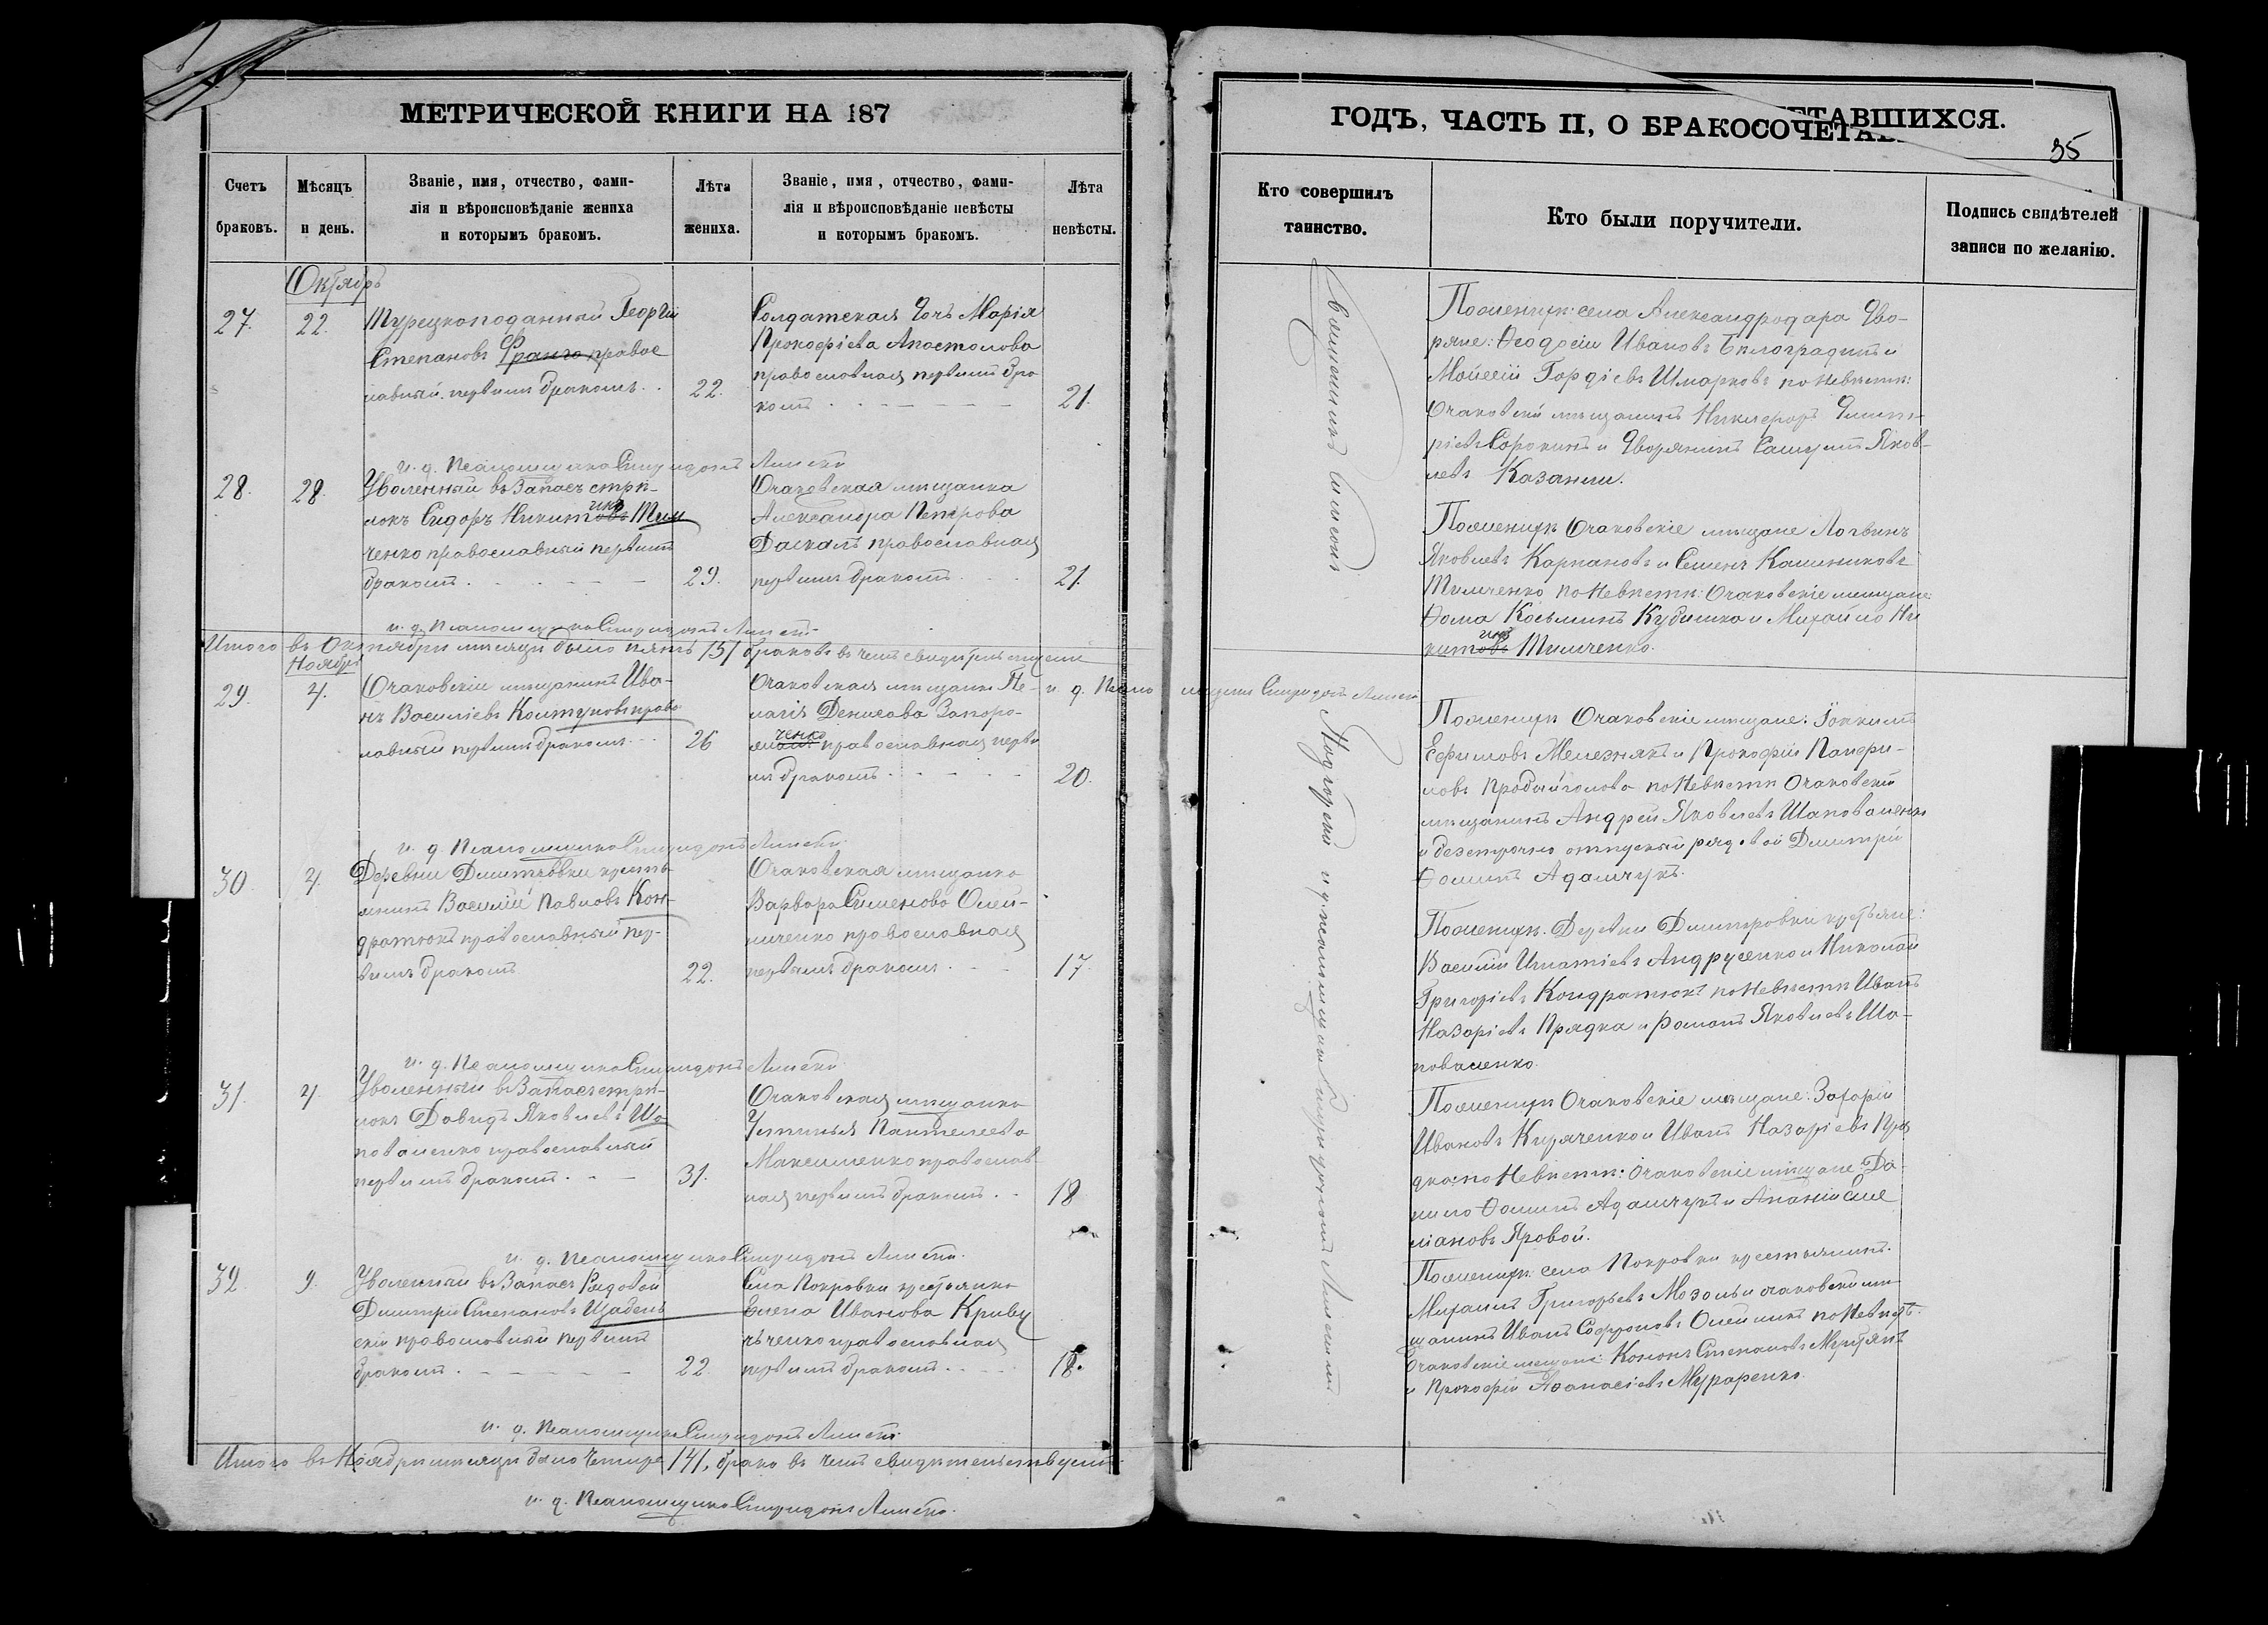 МЕТРИЧЕСКОЙ КНИГИ НА 187
Счетъ браковъ.
Мѣсяцъ и день.
Званіе, имя, отчество, фами-
лія и вѣроисповѣданіе жениха
и которымъ бракомъ.
Лѣта жениха.
Званіе, имя, отчество, фами-
лія и вѣроисповѣданіе невѣсты
и которымъ бракомъ.
Лѣта невѣсты.
Октябрь
27. 22.
Турецкоподанный Георгій
Степановъ Франго правос
лавный первымъ бракомъ
22.
Солдатская дочь Марія
Прокофіева Апостолова
православная первымъ бра
комъ
21.
и. д. Псаломщика Спиридонъ
28. 28.
Уволенный въ Запасъ стрѣ-
локъ Сидоръ Никитовъ Тим
ченко православный первымъ
бракомъ
29.
Очаковская мѣщанка
Александра Петрова
Даскалъ православная
первымъ бракомъ
21.
и. д. Псаломщика Спиридонъ
Итого въ Октябрѣ мѣсяцѣ было пять /5/ браковъ въ чемъ свидѣтельствуемъ
и. д. Псаломщика Спиридонъ
Ноябрь
29. 4.
Очаковскій мѣщанинъ Ива-
нъ Василіевъ Колтуновъ право
лавный первымъ бракомъ
26
Очаковская мѣщанка Пе-
лагія Денисова Запоро-
ченко православная перв
мъ бракомъ
20.
и. д. Псаломщика Спиридонъ
30. 4.
Деревни Дмитровки крестья
янинъ Василій Павловъ Кон-
дратюкъ православный пер-
вымъ бракомъ
22.
Очаковская мѣщанка
Варвара Сименова Олей-
ниченко православная
первымъ бракомъ
17.
и. д. Псаломщика Спиридонъ
31. 4.
Уволенный въ Запасъ стрѣ-
локъ Давидъ Яковлевъ Ша
поваленко православный
первымъ бракомъ
31.
Очаковская мѣщанка
Устинья Пантелеева
Максименко православ
ная первымъ бракомъ
18
и. д. Псаломщика Спиридонъ
32. 9.
Уволенный въ Запасъ Рядовой
Димитрій Степановъ
скій православный первымъ
бракомъ
22
Села Покровки крестьянка
Елена Иванова Кривц
ченко православная
первымъ бракомъ
18.
и. д. Псаломщика Спиридонъ
Итого въ Ноябрѣ мѣсяцѣ было Четыре /4/, брака въ чемъ свидѣтельствуемъ
и. д. Псаломщика Спиридонъ
ГОДЪ, ЧАСТЬ II, О БРАКОСОЧЕТАВШИХСЯ.
35
Кто совершилъ таинство.
Кто были поручители.
Подпись свидѣтелей
записи по желанію.
Священникъ
По женихѣ: села Александродара Дво-
ряне: Ѳеодосій Ивановъ Бѣлоградинъ и
Мойсей Гордіевъ Шмарковъ по Невѣстѣ:
Очаковскій мѣщанинъ Никифоръ Дмит-
ріевъ Сорокинъ и Дворянинъ Яков-
левъ Казанли.
По женихѣ Очаковскіе мѣщане Логвинъ
Яковлевъ Карпановъ и Семенъ Калинниковъ
Тимченко по Невѣстѣ: Очаковскіе мѣщане
Ѳома Косьминъ Кубышко и Михайло Ни
китовъ Тимченко.
По женихѣ Очаковскіе мѣщане: Іоакимъ
Ефимовъ Железнякъ и Прокофій Панфи-
ловъ Продайголова по Невѣстѣ Очаковскій
мѣщанинъ Андрей Яковлевъ Шаповаленко
и безсрочно отпускный рядовой Димитрій
Ѳоминъ Адамчукъ.
По женихѣ. Деревни Димитровки крестьяне:
Василій Игнатіевъ Андрусенко и Николай
Григоріевъ Кондратюкъ по Невѣстѣ Иванъ
Назаріевъ Прядка и Романъ Яковлевъ Ша-
поваленко.
По женихѣ Очаковскіе мѣщане: Захарій
Ивановъ Киряченко и Иванъ Назаріевъ Пря
дка по Невѣстѣ: Очаковскіе мѣщане Да-
нило Ѳоминъ Адамчукъ и Ананій Сила
міановъ Яровой.
По женихѣ села Покровки крестьянинъ
Михаилъ Григорьевъ Мозоль и очаковскій мѣ
щанинъ Иванъ Софроновъ Олейникъ по Невѣстѣ
Очаковскіе мещане Кононъ Степановъ
и Прокофій Афанасіевъ Мураренко